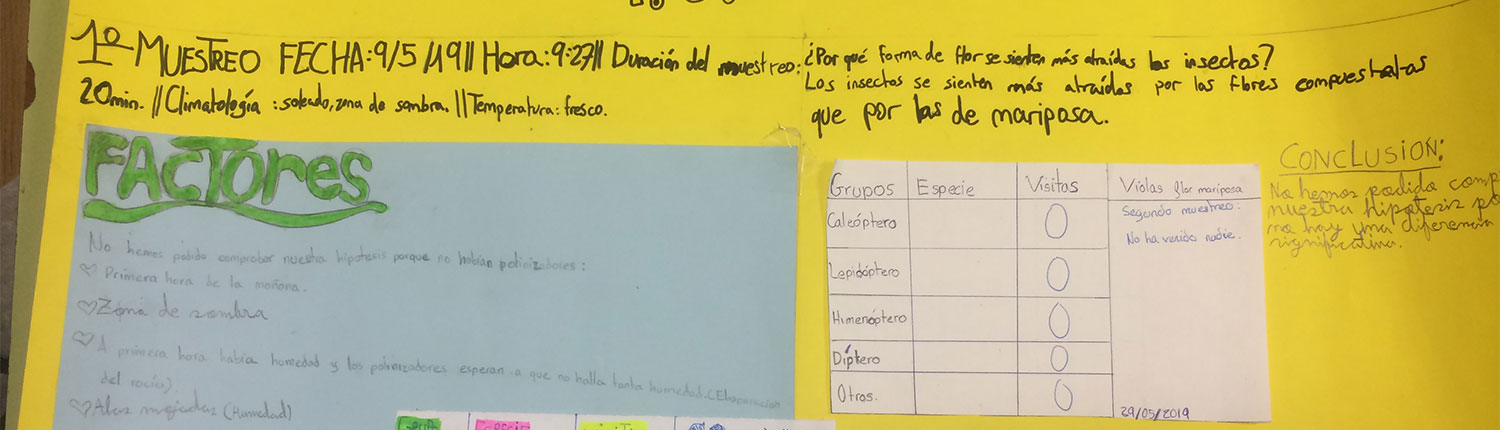 1º MUESTREO FECHA: 9/5/19 || Hora: 9:27 || Duración del muestreo:
20min. || Climatología: soleado, zona de sombra. || Temperatura: fresco.
¿Por qué forma de flor se sienten más atraídas los insectos?
Los insectos se sienten más atraídos por las flores compuestas
que por las de mariposa.
FACTORES
No hemos podido comprobar nuestra hipotesis porque no habían polinizadores:
Primera hora de la mañana.
Zona de sombra
A primera hora había humedad y los polinizadores esperan a que no halla tanta humedad. (Elaboración
del rocío).
Alas mojadas (Humedad)
Grupos Especie Visitas Violas flor mariposa
Caleóptero 0 Segundo muestreo:
No ha venido nadie.
Lepidóptero 0
Himenóptero 0
Díptero 0
Otros. 0
29/05/2019
CONCLUSIÓN:
No hemos podido comp
nuestra hipotesis po
no hay una diferencia
significativa.